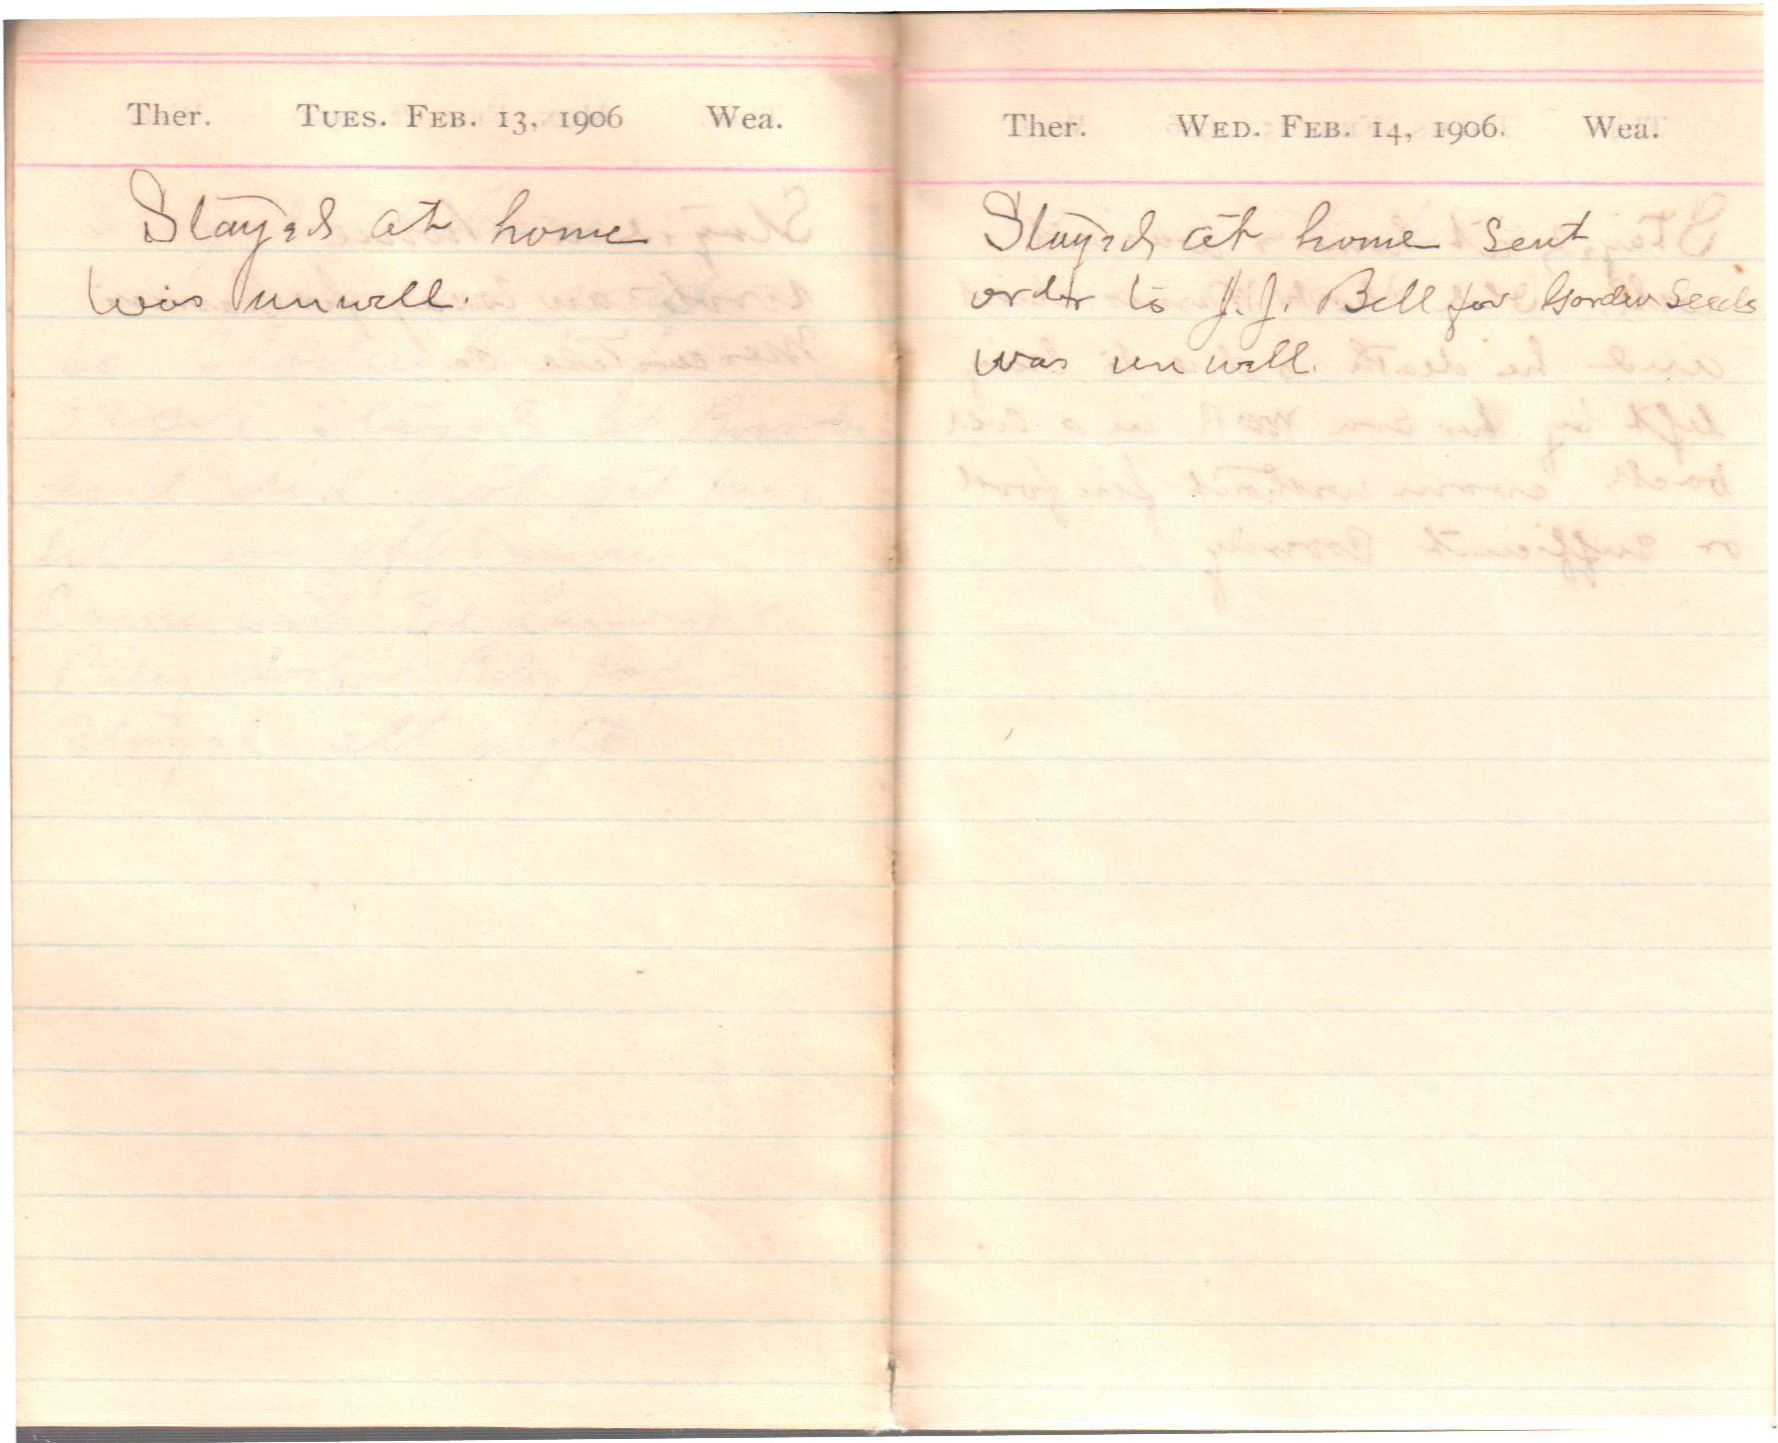 Ther. Tues. Feb. 13, 1906 Wea.
Stayed at home
was unwell.
Ther. Wed. Feb. 14, 1906. Wea.
Stayed at home sent
order to J. J. Bell for Garden Seeds
was un well.